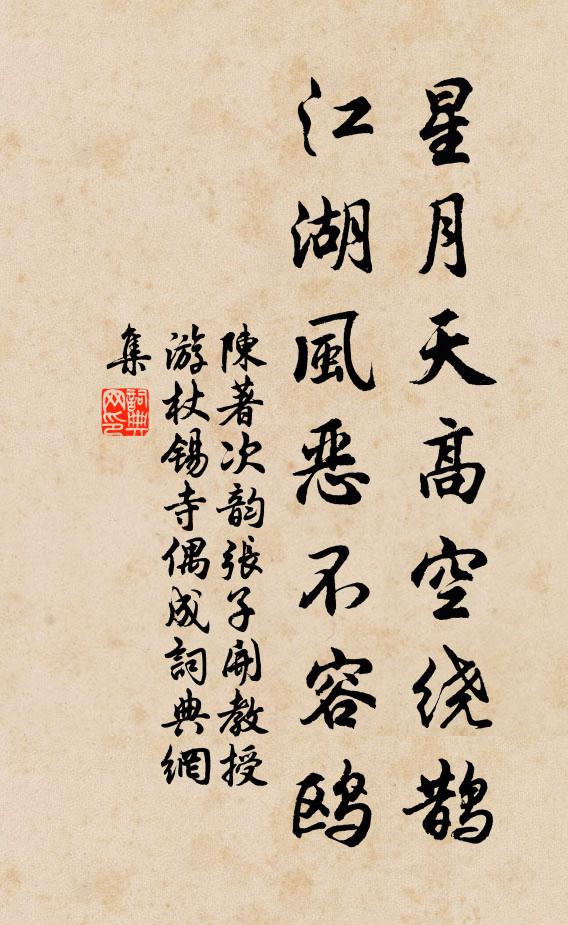 星月天高空绕鹊
江湖風恶不容鸥
陳著次韵張子開教授
游杖锡寺偶成詞典網
集
詞典网印